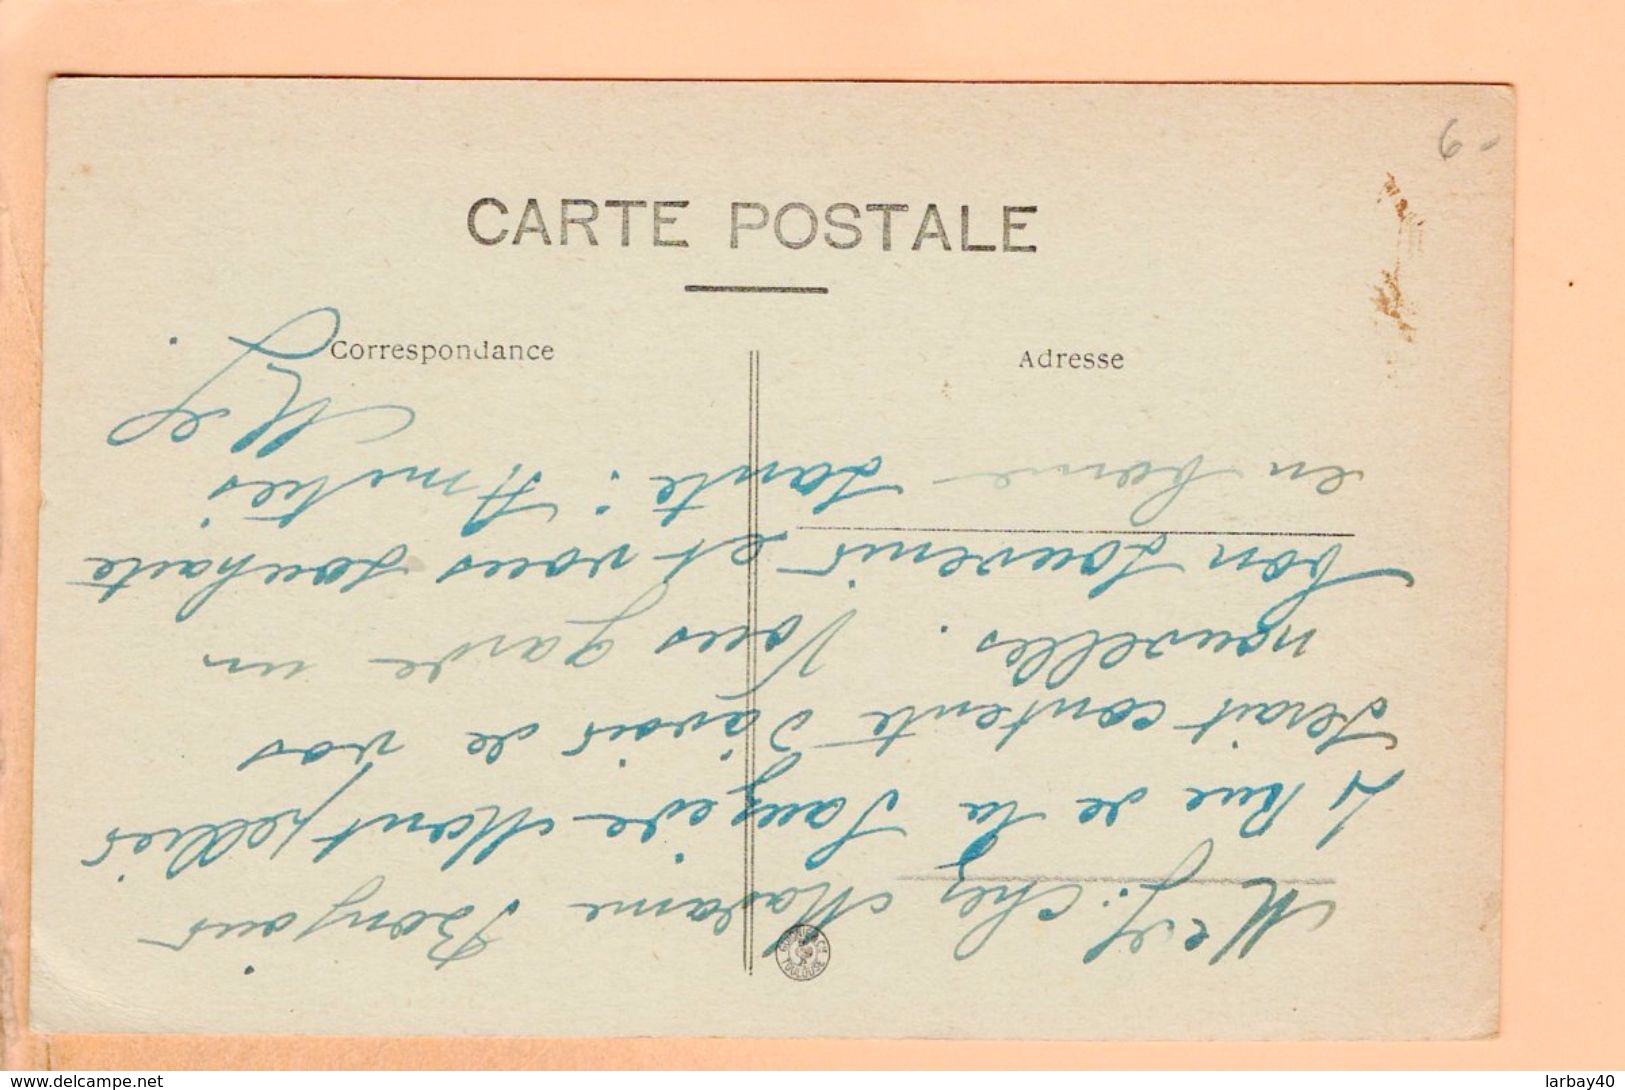 CARTE POSTALE
Correspondance
Adresse
chez Madame Bonjour
Rue de la Montpellier
serait contente d'avoir de vos
nouvelles. Vous garde un
bon souvenir et vous souhaite
en bonne santé : Amitiés
TOULOUSE
6
delcampe.net
larbay40